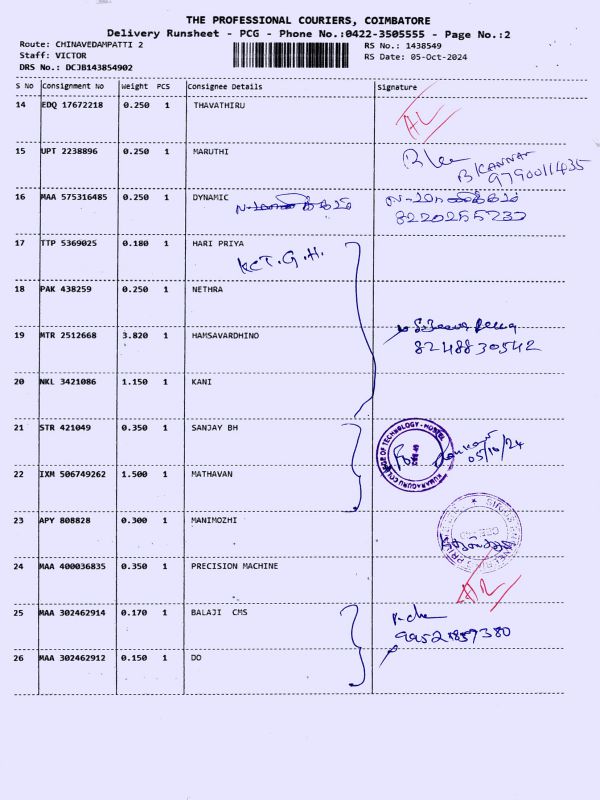 THE PROFESSIONAL COURIERS, COIMBATORE
Delivery Runsheet - PCG - Phone No.:0422-3505555 - Page No.:2
Route: CHINAVEDAMPATTI 2 RS No.: 1438549
Staff: VICTOR RS Date: 05-Oct-2024
DRS No.: DCJB143854902
S No Consignment No Weight PCS Consignee Details Signature
14 EDQ 17672218 0.250 1 THAVATHIRU
15 UPT 2238896 0.250 1 MARUTHI
B KANNAN
9790011435
16 MAA 575316485 0.250 1 DYNAMIC
8220255732
17 TTP 5369025 0.180 1 HARI PRIYA
KCT. G.H.
18 PAK 438259 0.250 1 NETHRA
19 MTR 2512668 3.820 1 HAMSAVARDHINO
8248830542
20 NKL 3421086 1.150 1 KANI
21 STR 421049 0.350 1 SANJAY BH
KUMARAGURU COLLEGE OF TECHNOLOGY - HOSTEL
For
05/10/24
22 IXM 506749262 1.500 1 MATHAVAN
23 APY 808828 0.300 1 MANIMOZHI
24 MAA 400036835 0.350 1 PRECISION MACHINE
25 MAA 302462914 0.170 1 BALAJI CMS
26 MAA 302462912 0.150 1 DO